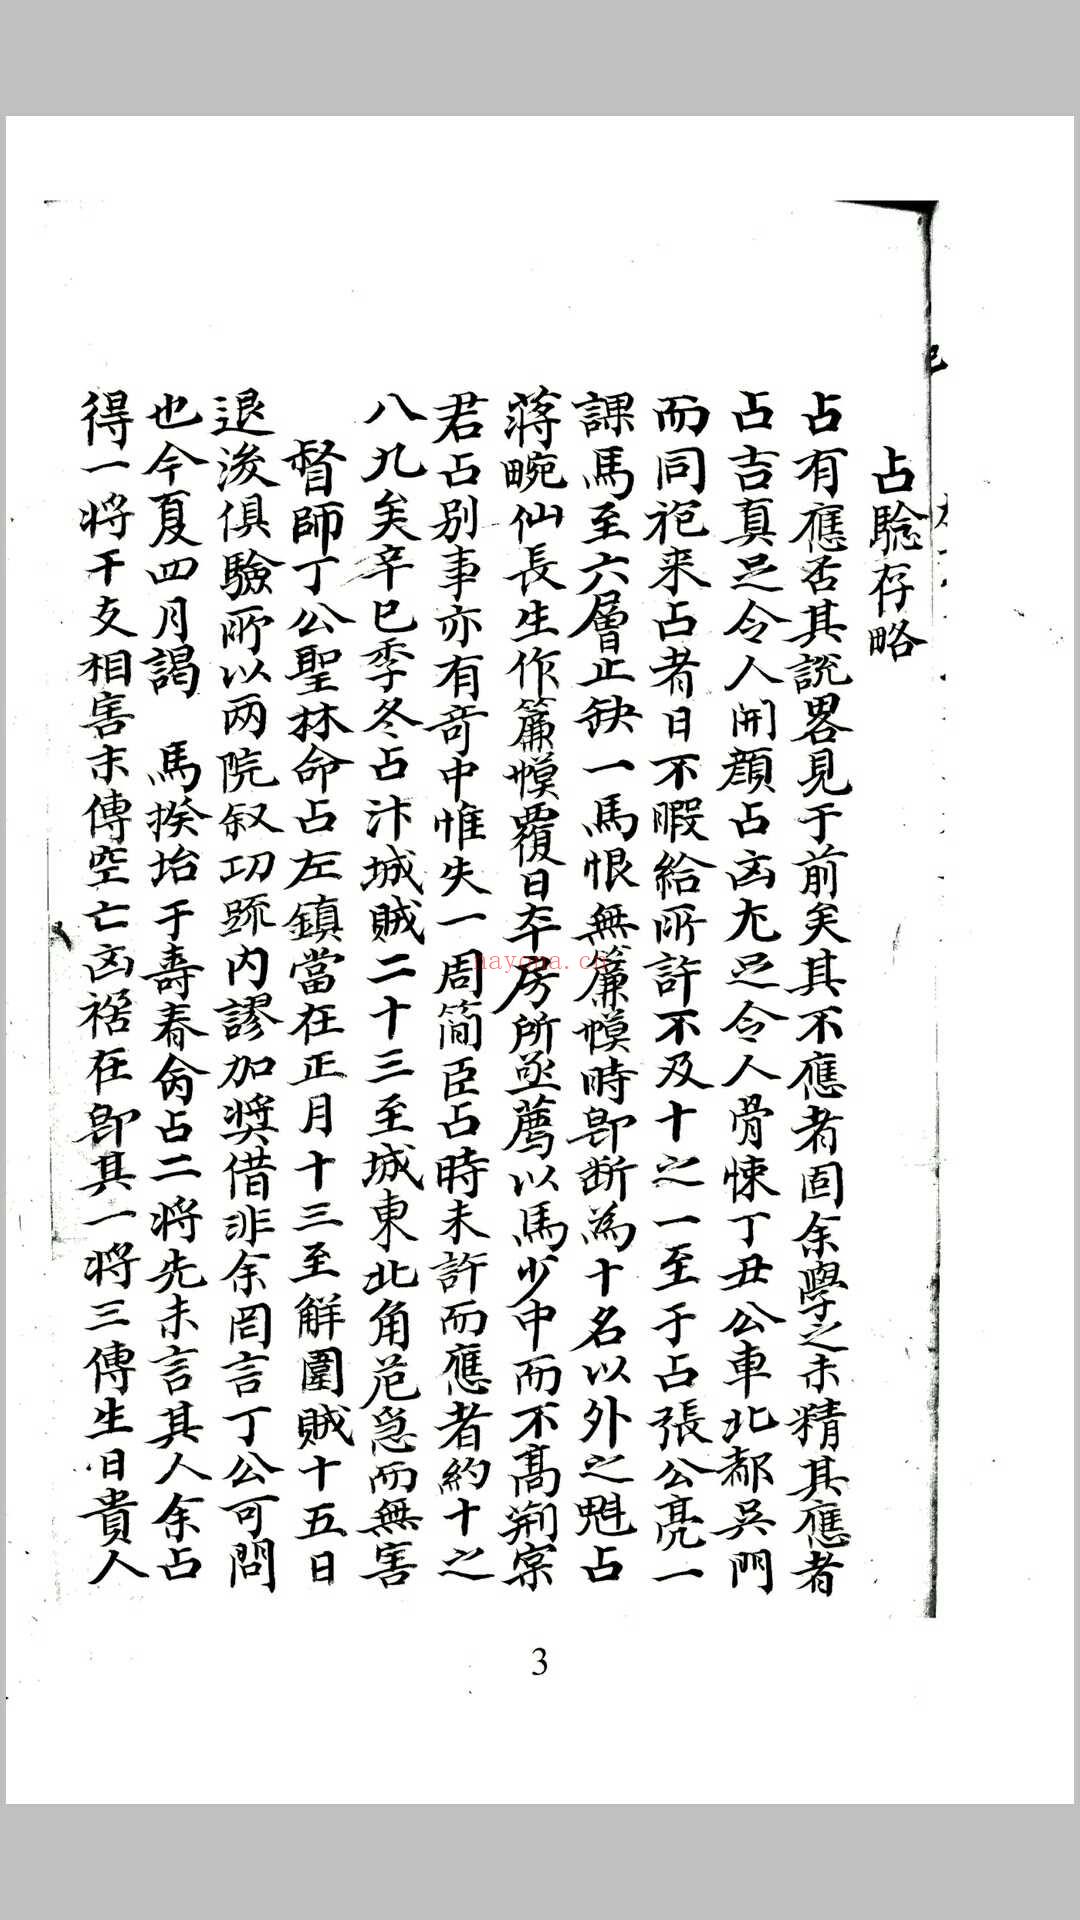 占騐存略
占有應否其說畧見于前矣其不應者固余學之未精其應者
占吉真足令人開顏占凶尤足令人骨悚丁丑公車北都吳門
而同袍来占者日不暇給所許不及十之一至于占張公亮一
課馬至六層止缺一馬恨無簾幙時即断為十名以外之魁占
蔣畹仙長生作簾幙覆日本房所亟薦以馬少中而不髙荆宗
君占别事亦有竒中惟失一周簡臣占時未許而應者約十之
八九矣辛巳季冬占汴城賊二十三至城東北角危急而無害
督師丁公聖林命占左鎮當在正月十三至觧圍賊十五日
退後俱驗所以两院叙功䟽内謬加奨借非余罔言丁公可問
也今夏四月謁 馬揆坮于壽春命占二将先未言其人余占
得一将干支相害末傳空亡凶禍在即其一将三傳生日貴人
nayona.cn
3